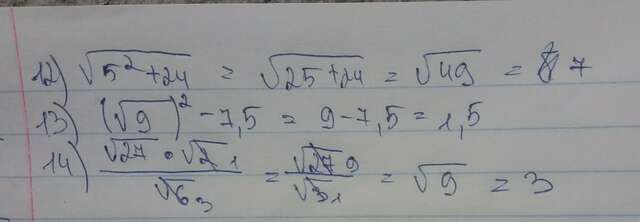 12) √(5² + 24) = √(25 + 24) = √49 = 7
13) (√9)² - 7,5 = 9 - 7,5 = 1,5
14) (√27 • √2 1)/(√6 3) = (√27 9)/(√3 1) = √9 = 3